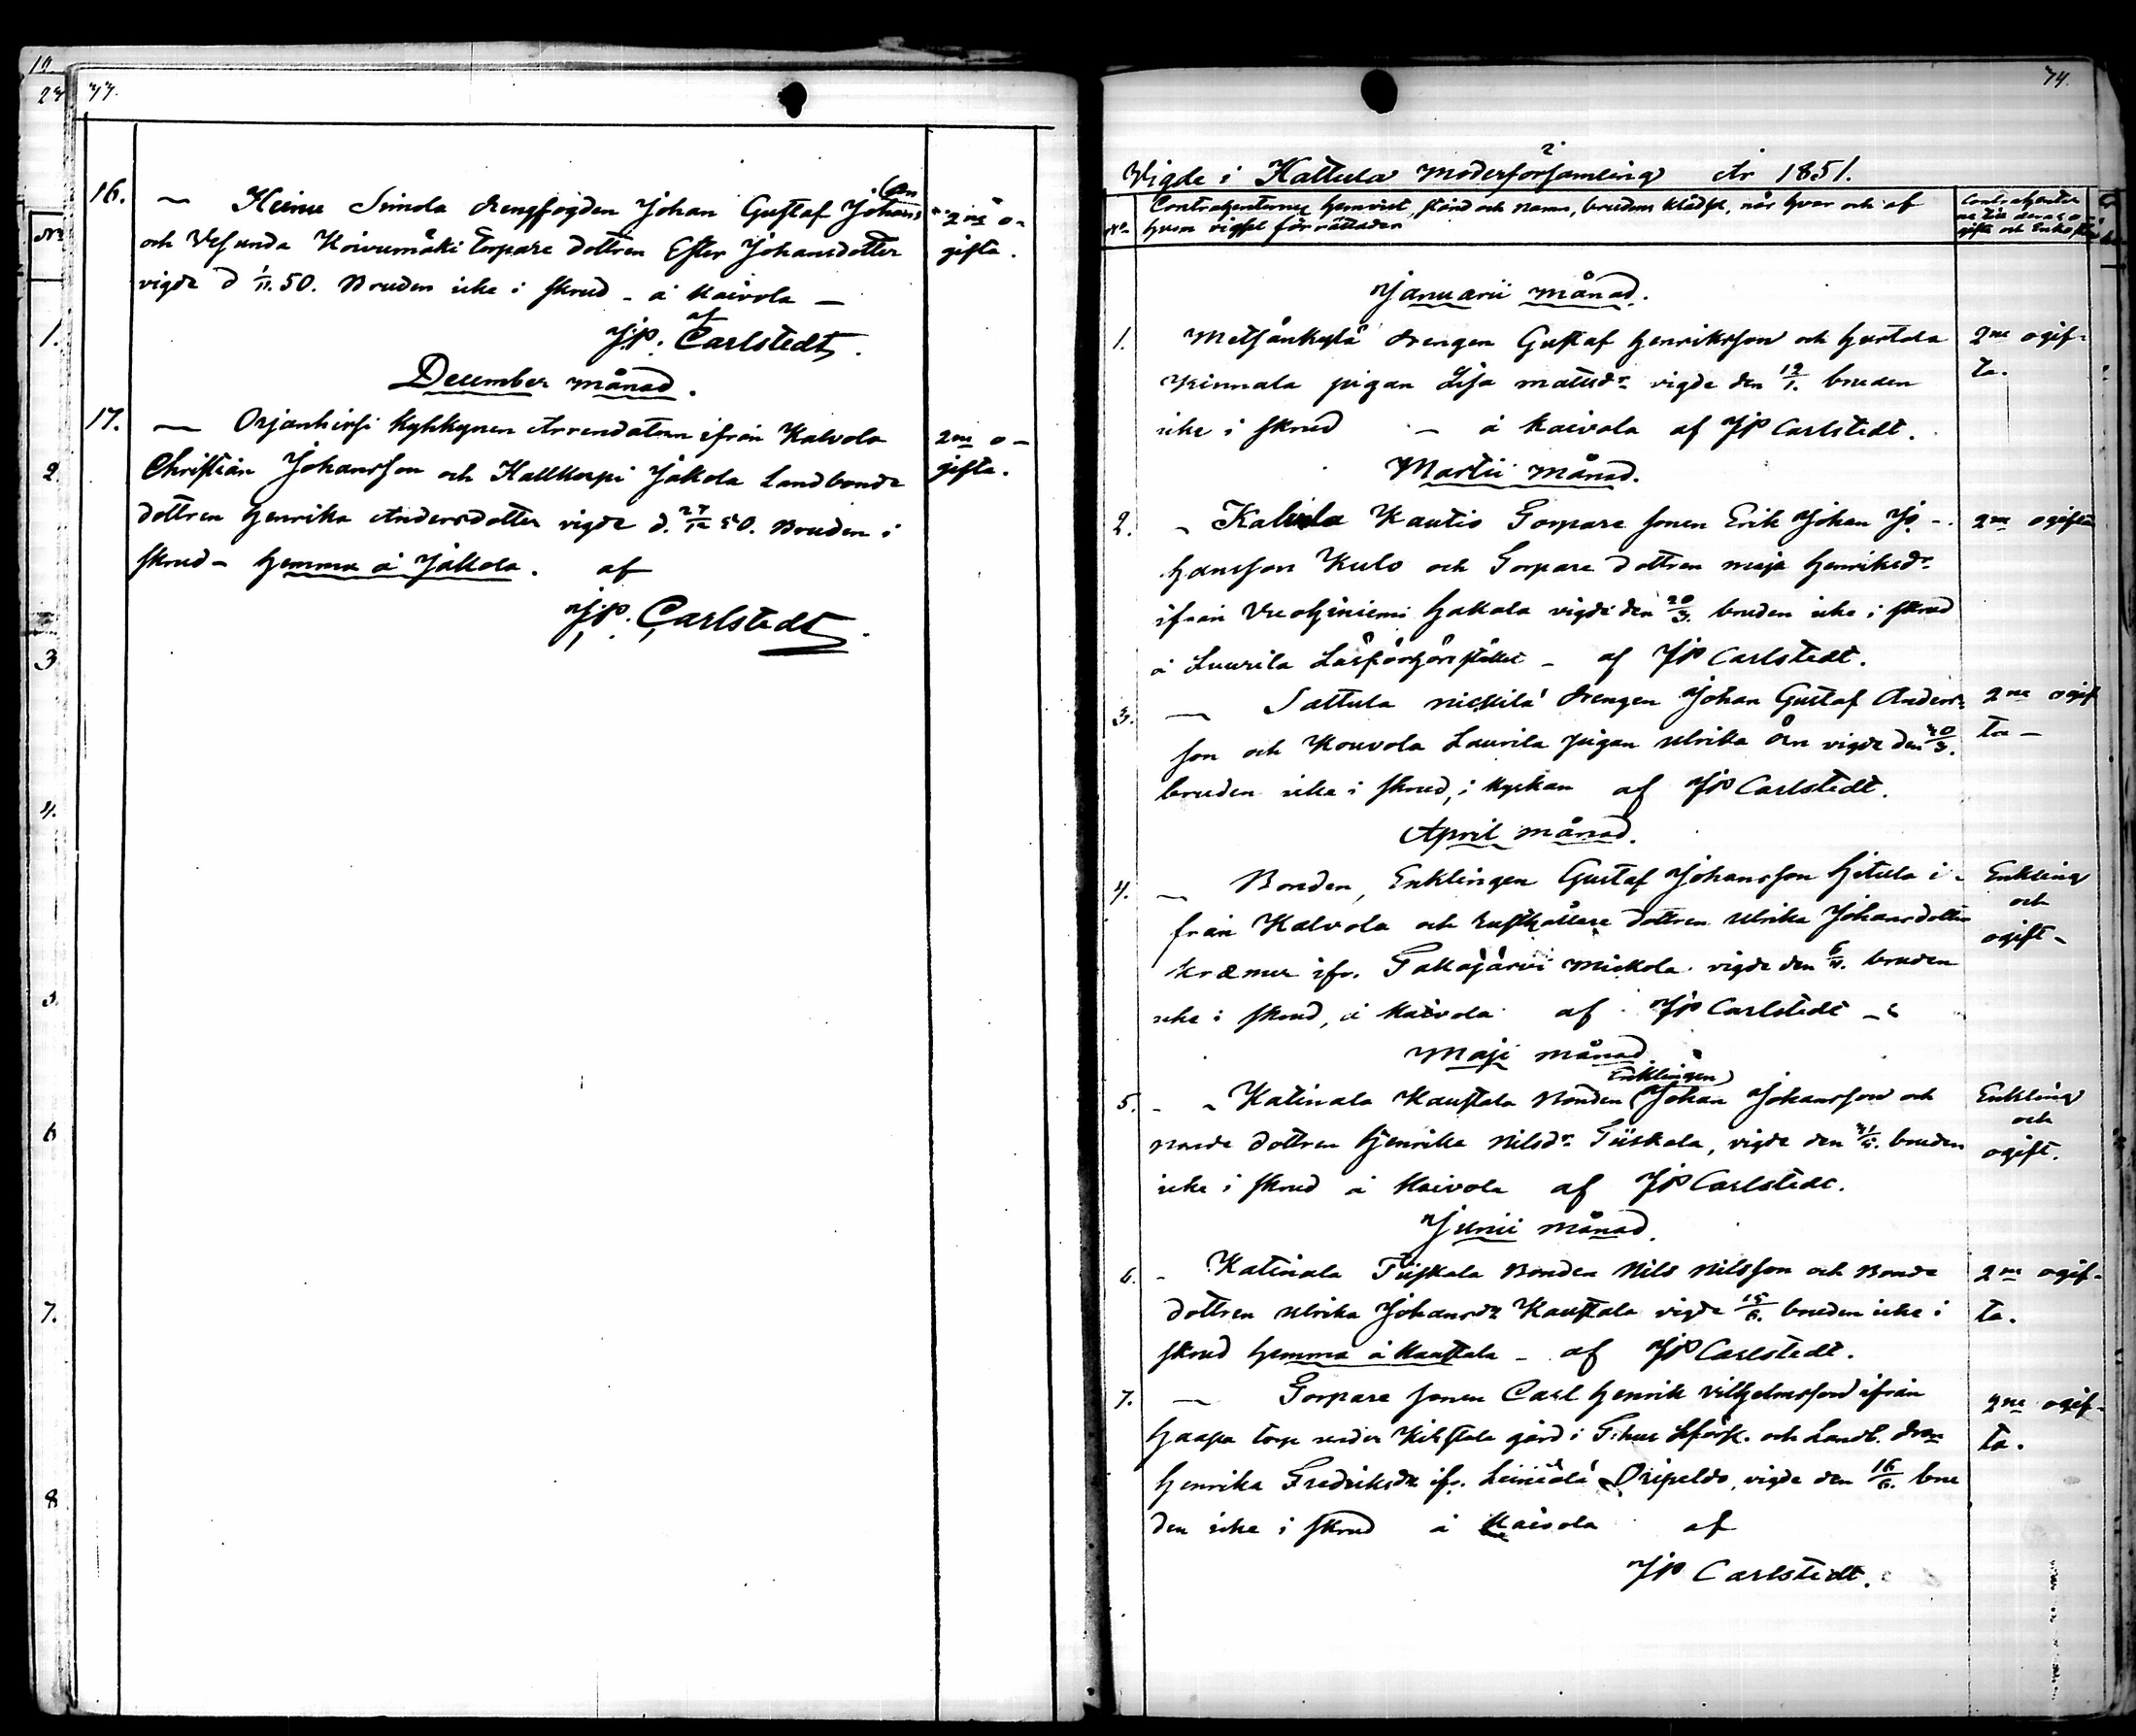 77.
16. — Heinu Simola drengfogden Johan Gustaf Johans
son
2ne o-
och Vesunda Koivumäki Torpare dottren Ester Johansdotter
gifta.
vigde d 1/11. 50. Bruden icke i skrud - å Kaivola —
af
JP. Carlstedt.
December månad.
17. — Orjanhirsi Kykkynen Arrendatorn ifrån Kalvola
2ne o-
Christian Johansson och Kallkorpi Jakola Landbonde
gifta.
dottren Henrika Andersdotter vigde d. 27/12 50. Bruden i
skrud - hemma å Jakola. af
JP. Carlstedt.
74.
Vigde i Hattula Moderförsamling År 1851.
No. Contrahenternes hemvist, stånd och namn, brudens klädsel, när hvar och af
hvem vigsel förrättades
Januarii månad.
1. Metsänkylä drengen Gustaf Henriksson och Hurtala
2ne ogif-
Kinnala pigan Lisa Mattsdr vigde den 12/1. bruden
ta.
icke i skrud — å Kaivola af JP Carlstedt.
Martii månad.
2. - Kalvola Kautio Torpare sonen Erik Johan Jo-
2ne ogifta
hansson Kulo och Torpare dottren Maja Henriksdr
ifrån Vuohiniemi Hakala vigde den 20/3. bruden icke i skrud
å Luurila Läsförhörstället - af JP Carlstedt.
3. — Sattula Nickilä drengen Johan Gustaf Anders-
2ne ogif
son och Kouvola Laurila pigan Ulrika Örn vigde den 30/3.
ta -
bruden icke i skrud, i kyrkan af JP Carlstedt.
April månad.
4. — Bonden, Enklingen Gustaf Johansson Hitula i-
Enkling
och
från Kalvola och Rusthållare dottren Ulrika Johansdotter
ogift -
Kræmer ifr. Takajärvi Mickola vigde den 6/4. bruden
icke i skrud, å Kaivola af JP Carlstedt -
Maji månad.
Enklingen
5. - Katinala Kaustala Bonden Johan Johansson och
Enkling
och
Bonde dottren Henrika Nilsdr Tiiskala, vigde den 31/5. bruden
ogift.
icke i skrud å Kaivola af JP Carlstedt.
Junii månad.
6. - Katinala Tiiskala Bonden Nils Nilsson och Bonde
2ne ogif-
dottren Ulrika Johansdr Kaustala vigde 15/6. bruden icke i
ta.
skrud hemma å Kaustala - af JP Carlstedt.
7. — Torpare sonen Carl Henrik Vilhelmsson ifrån
2ne ogif-
Haapa torp under Kihstala gård i T:hus Lförs. och Landb. dron
ta.
Henrika Fredriksdr ifr. Leiniälä Oripeldo, vigde den 16/6. bru
den icke i skrud å Kaivola af
JP Carlstedt.
No
1.
2.
3
4.
5.
6
7.
8